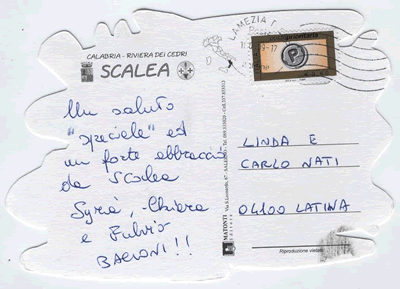 CALABRIA - RIVIERA DEI CEDRI
SCALEA
Un saluto
"speciale" ed
un forte abbraccio
da Scalea
Syria, Chiara
e Fulvio
BACIONI!!
LAMEZIA
prioritaria
LINDA E
CARLO NATI
04100 LATINA
MATONTI
Editore
Riproduzione vietata